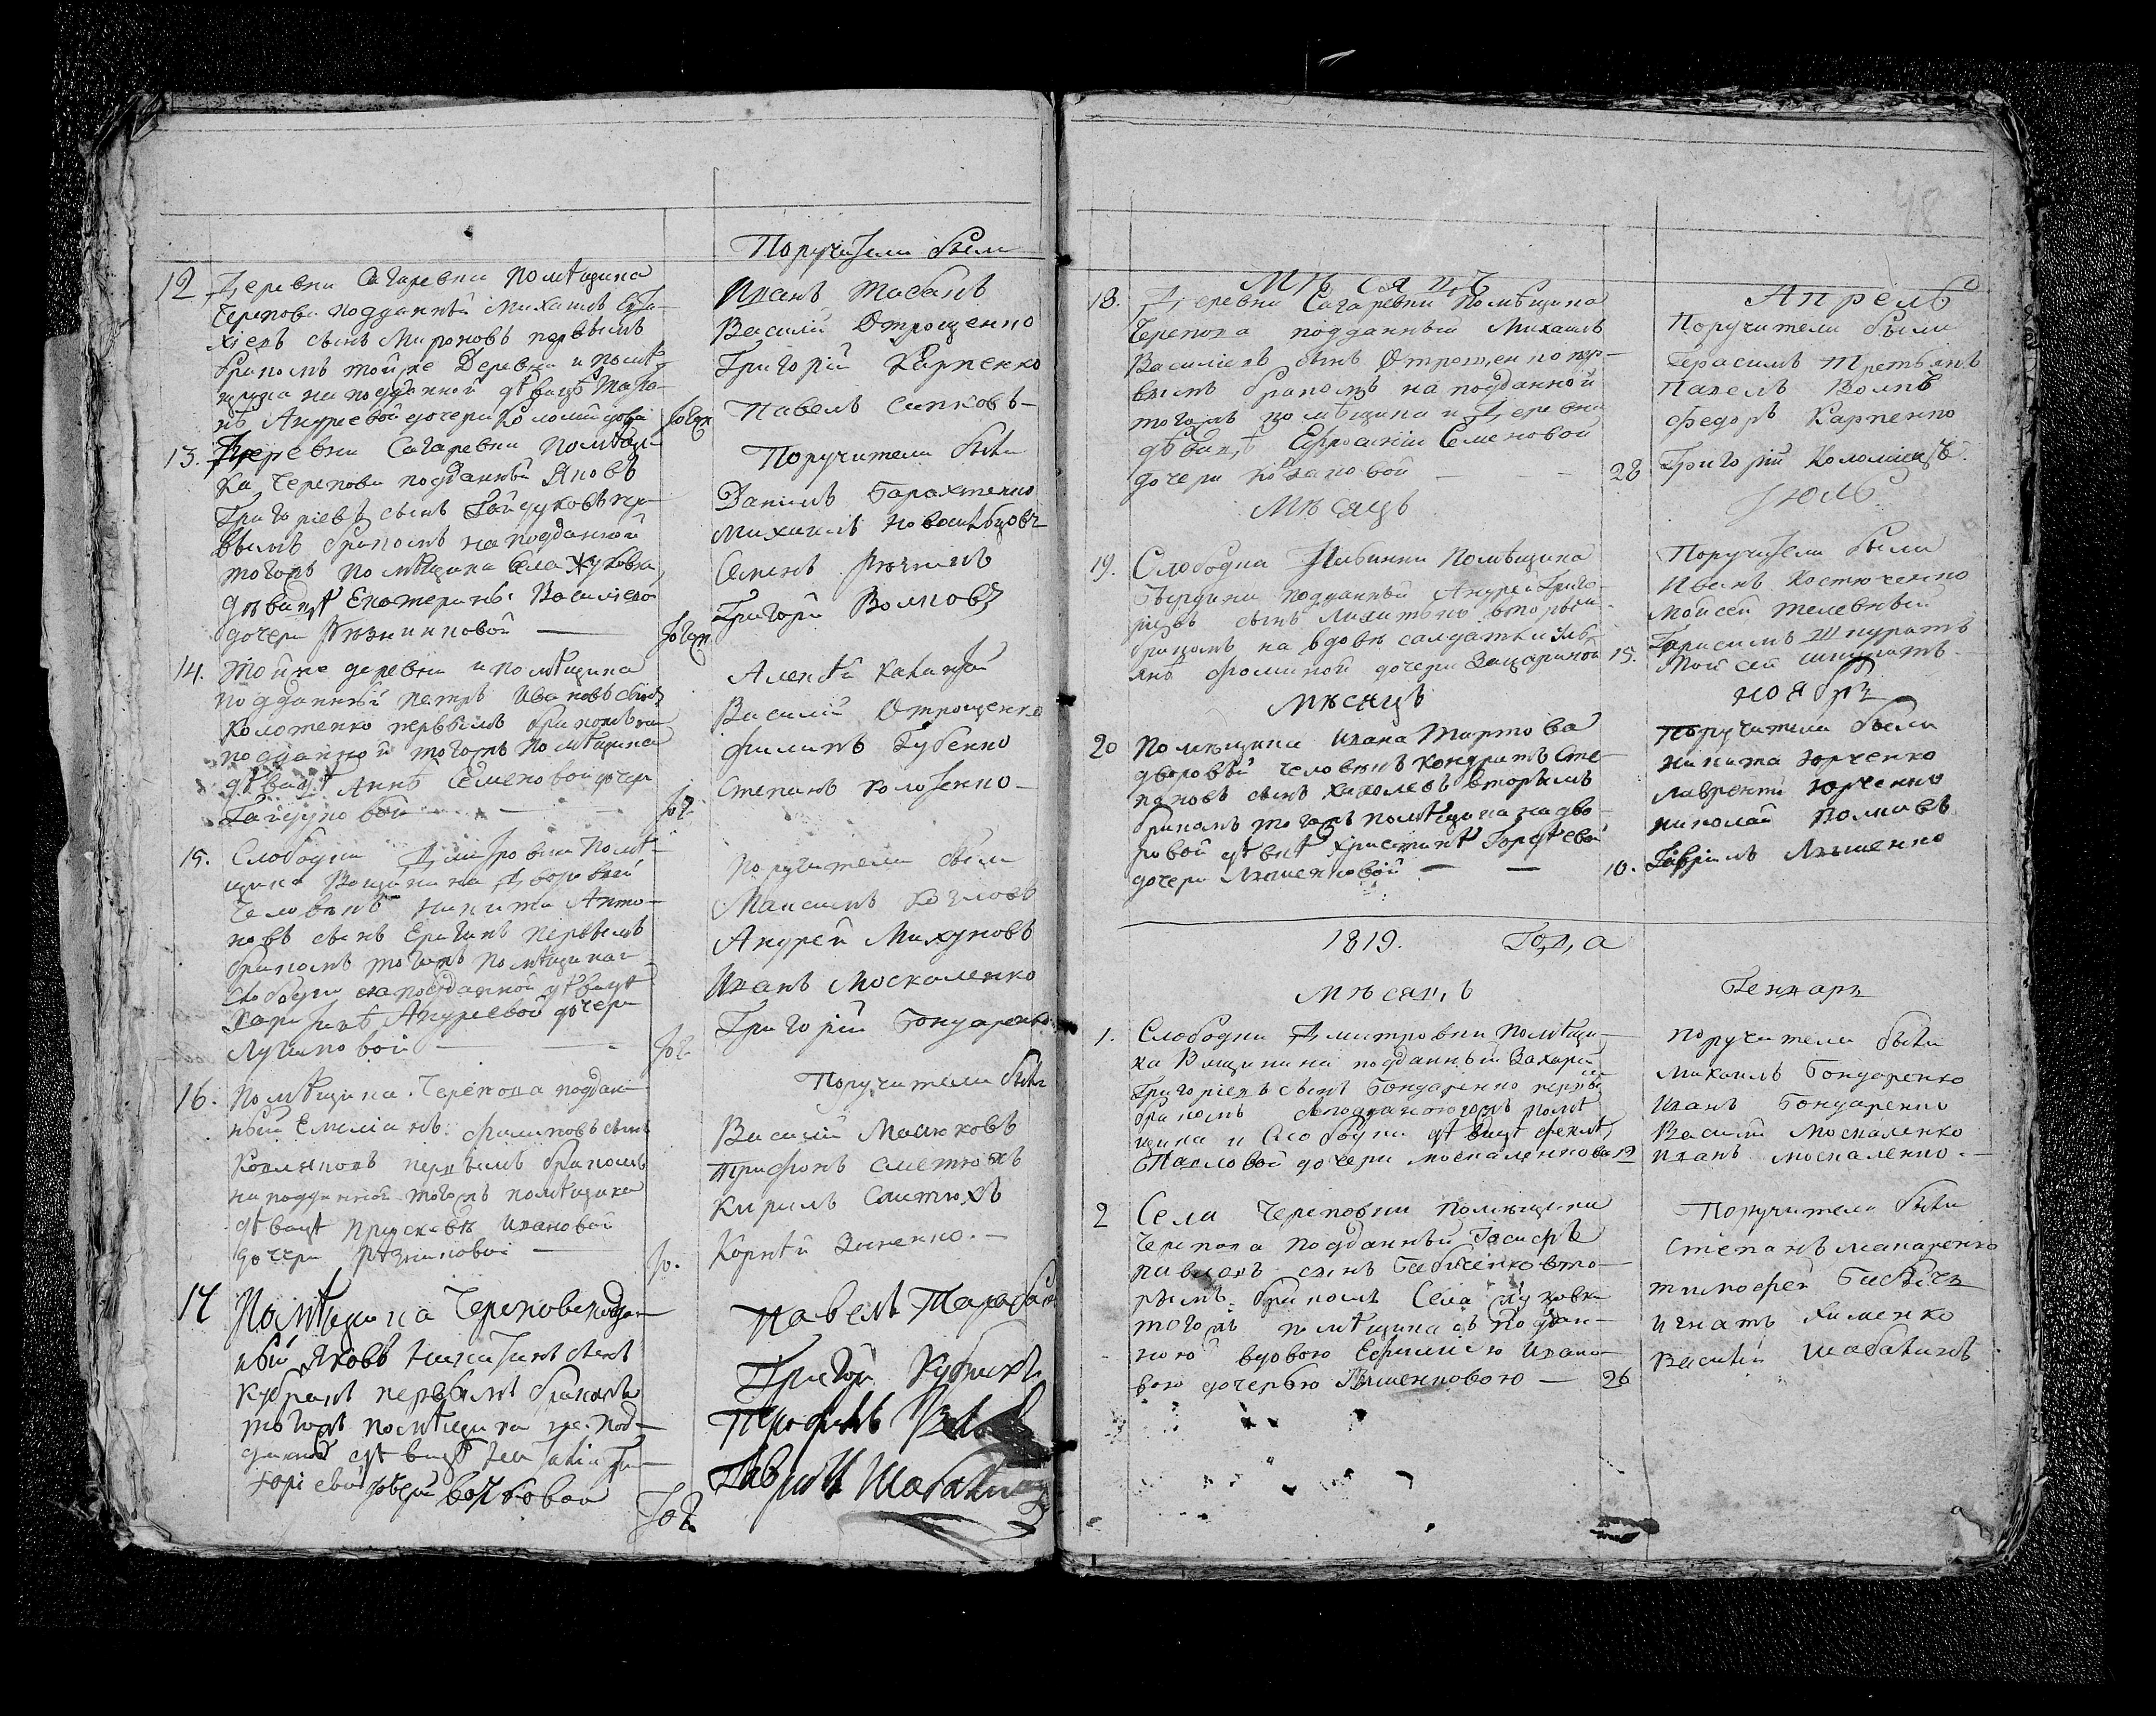 Поручители были
12 Деревни Сагаревки помѣщика
Черепова подданный Михаилъ
сынъ Мироновъ первымъ
бракомъ тойже Деревни и помѣ-
щика на подданной дѣвицѣ
Андреевой дочери
Иванъ Табанъ
Василій Отрощенко
Григорій Карпенко
Павелъ Сипковъ
13. Деревни Сагаревки помѣщи-
ка Черепова подданный Яковъ
Григоріевъ сынъ Гайдуковъ пер-
вымъ бракомъ на подданной
тогожъ помѣщика Села Жуковки
дѣвицѣ Екатерины Василіевой
дочери Рѣзниковой
Поручители были
Данилъ Барахтенко
Михаилъ
Семенъ
Григорй Волковъ
14. Тойже деревни и помѣщика
подданный Петръ Ивановъ сынъ
Коложенко первымъ бракомъ на
подданной тогожъ помѣщика
дѣвицѣ Аннѣ Семеновой дочери
Гайдуковой
Алексѣй
Василій Отрощенко
Филипъ Губенко
Степанъ Коложенко
15. Слободки Дмитровки помѣ-
щика Вощинина Дворовый
человѣкъ Никита Анто-
новъ сынъ Ерыгинъ первымъ
бракомъ тогожъ помѣщика и
слободки на подданной дѣвицѣ
Харитинѣ Андреевой дочери
Поручители были
Максимъ Козловъ
Андрей Михуновъ
Иванъ Москаленко
Григорій Бондаренко
16. Помѣщика Черепова поддан-
ный Емеліанъ Филиповъ сынъ
первымъ бракомъ
на подданной тогожъ помѣщика
дѣвицѣ Прискевѣ Ивановой
дочери Рѣзниковой
Поручители были
Василій Машковъ
Трифонъ Сметюхъ
Кирилъ Смитюхъ
Корнѣй Зиненко.
17 Помѣщика Черепова поддан-
ный Яковъ Никитинъ сынъ
Кубракъ первымъ бракомъ
тогожъ помѣщика на под-
данной дѣвицѣ Наталіи Гри-
горіевой дочери Волковой
Павелъ
Григорй Кубракъ
Гаврилъ Шабалинъ
48
Мѣсяцъ Апрель
18. Деревни Сагаревки помѣщика
Черепова подданный Михаилъ
Василіевъ сынъ Отрощенко пер-
вымъ бракомъ на подданной
тогожъ помѣщика и Деревни
дѣвицѣ Ефросиніи Семеновой
дочери Козаковой 28
Поручители были
Герасимъ Третьякъ
Павелъ Волкъ
Федоръ Карпенко
Григорій Коломіецъ.
Мѣсяцъ Іюль
19. Слободки помѣщика
подданный Андрей Григо-
ріевъ сынъ Микитенко вторымъ
бракомъ на вдовѣ солдатки Уль-
янѣ Фоминой дочери 15.
Поручители были
Иванъ Костюченко
Моисей Телевный
Герасимъ Шкуратъ
Мойсей Шкуратъ
Мѣсяцъ Ноября
20 Помѣщика Ивана Мартова
дворовый человѣкъ Кондратъ Сте-
пановъ сынъ Хахолевъ вторымъ
бракомъ тогожъ помѣщика на дво-
ровой дѣвкѣ Христинѣ Гордѣевой
дочери Ляшенковой 10.
Поручители были
Никита Юрченко
Лаврентй Юрченко
Николай Волковъ
Гаврилъ Ляшенко
1819. Года
Мѣсяцъ Генваря
1. Слободки Дмитровки помѣщи-
ка Вощинина подданный Захарій
Григоріевъ сынъ Бондаренко первы
бракомъ с подданою тогожъ помѣ
щика и Слободки дѣвицѣ Феклѣ
Павловой дочери Москаленковой 12
Поручители были
Михаилъ Бондаренко
Иванъ Бондаренко
Василій Москаленко
Иванъ Москаленко.
2 Села Череповки помѣщика
Черепова подданный Іосифъ
Павловъ сынъ Бабиченко вто-
рымъ бракомъ Села Жуковки
тогожъ помѣщика съ поддан-
ною вдовою Ефиміею Ивано-
вою дочерью 26
Поручители были
Степанъ Макаренко
Тимофей Бабичъ
Игнатъ Хименко
Василій Шабалинъ